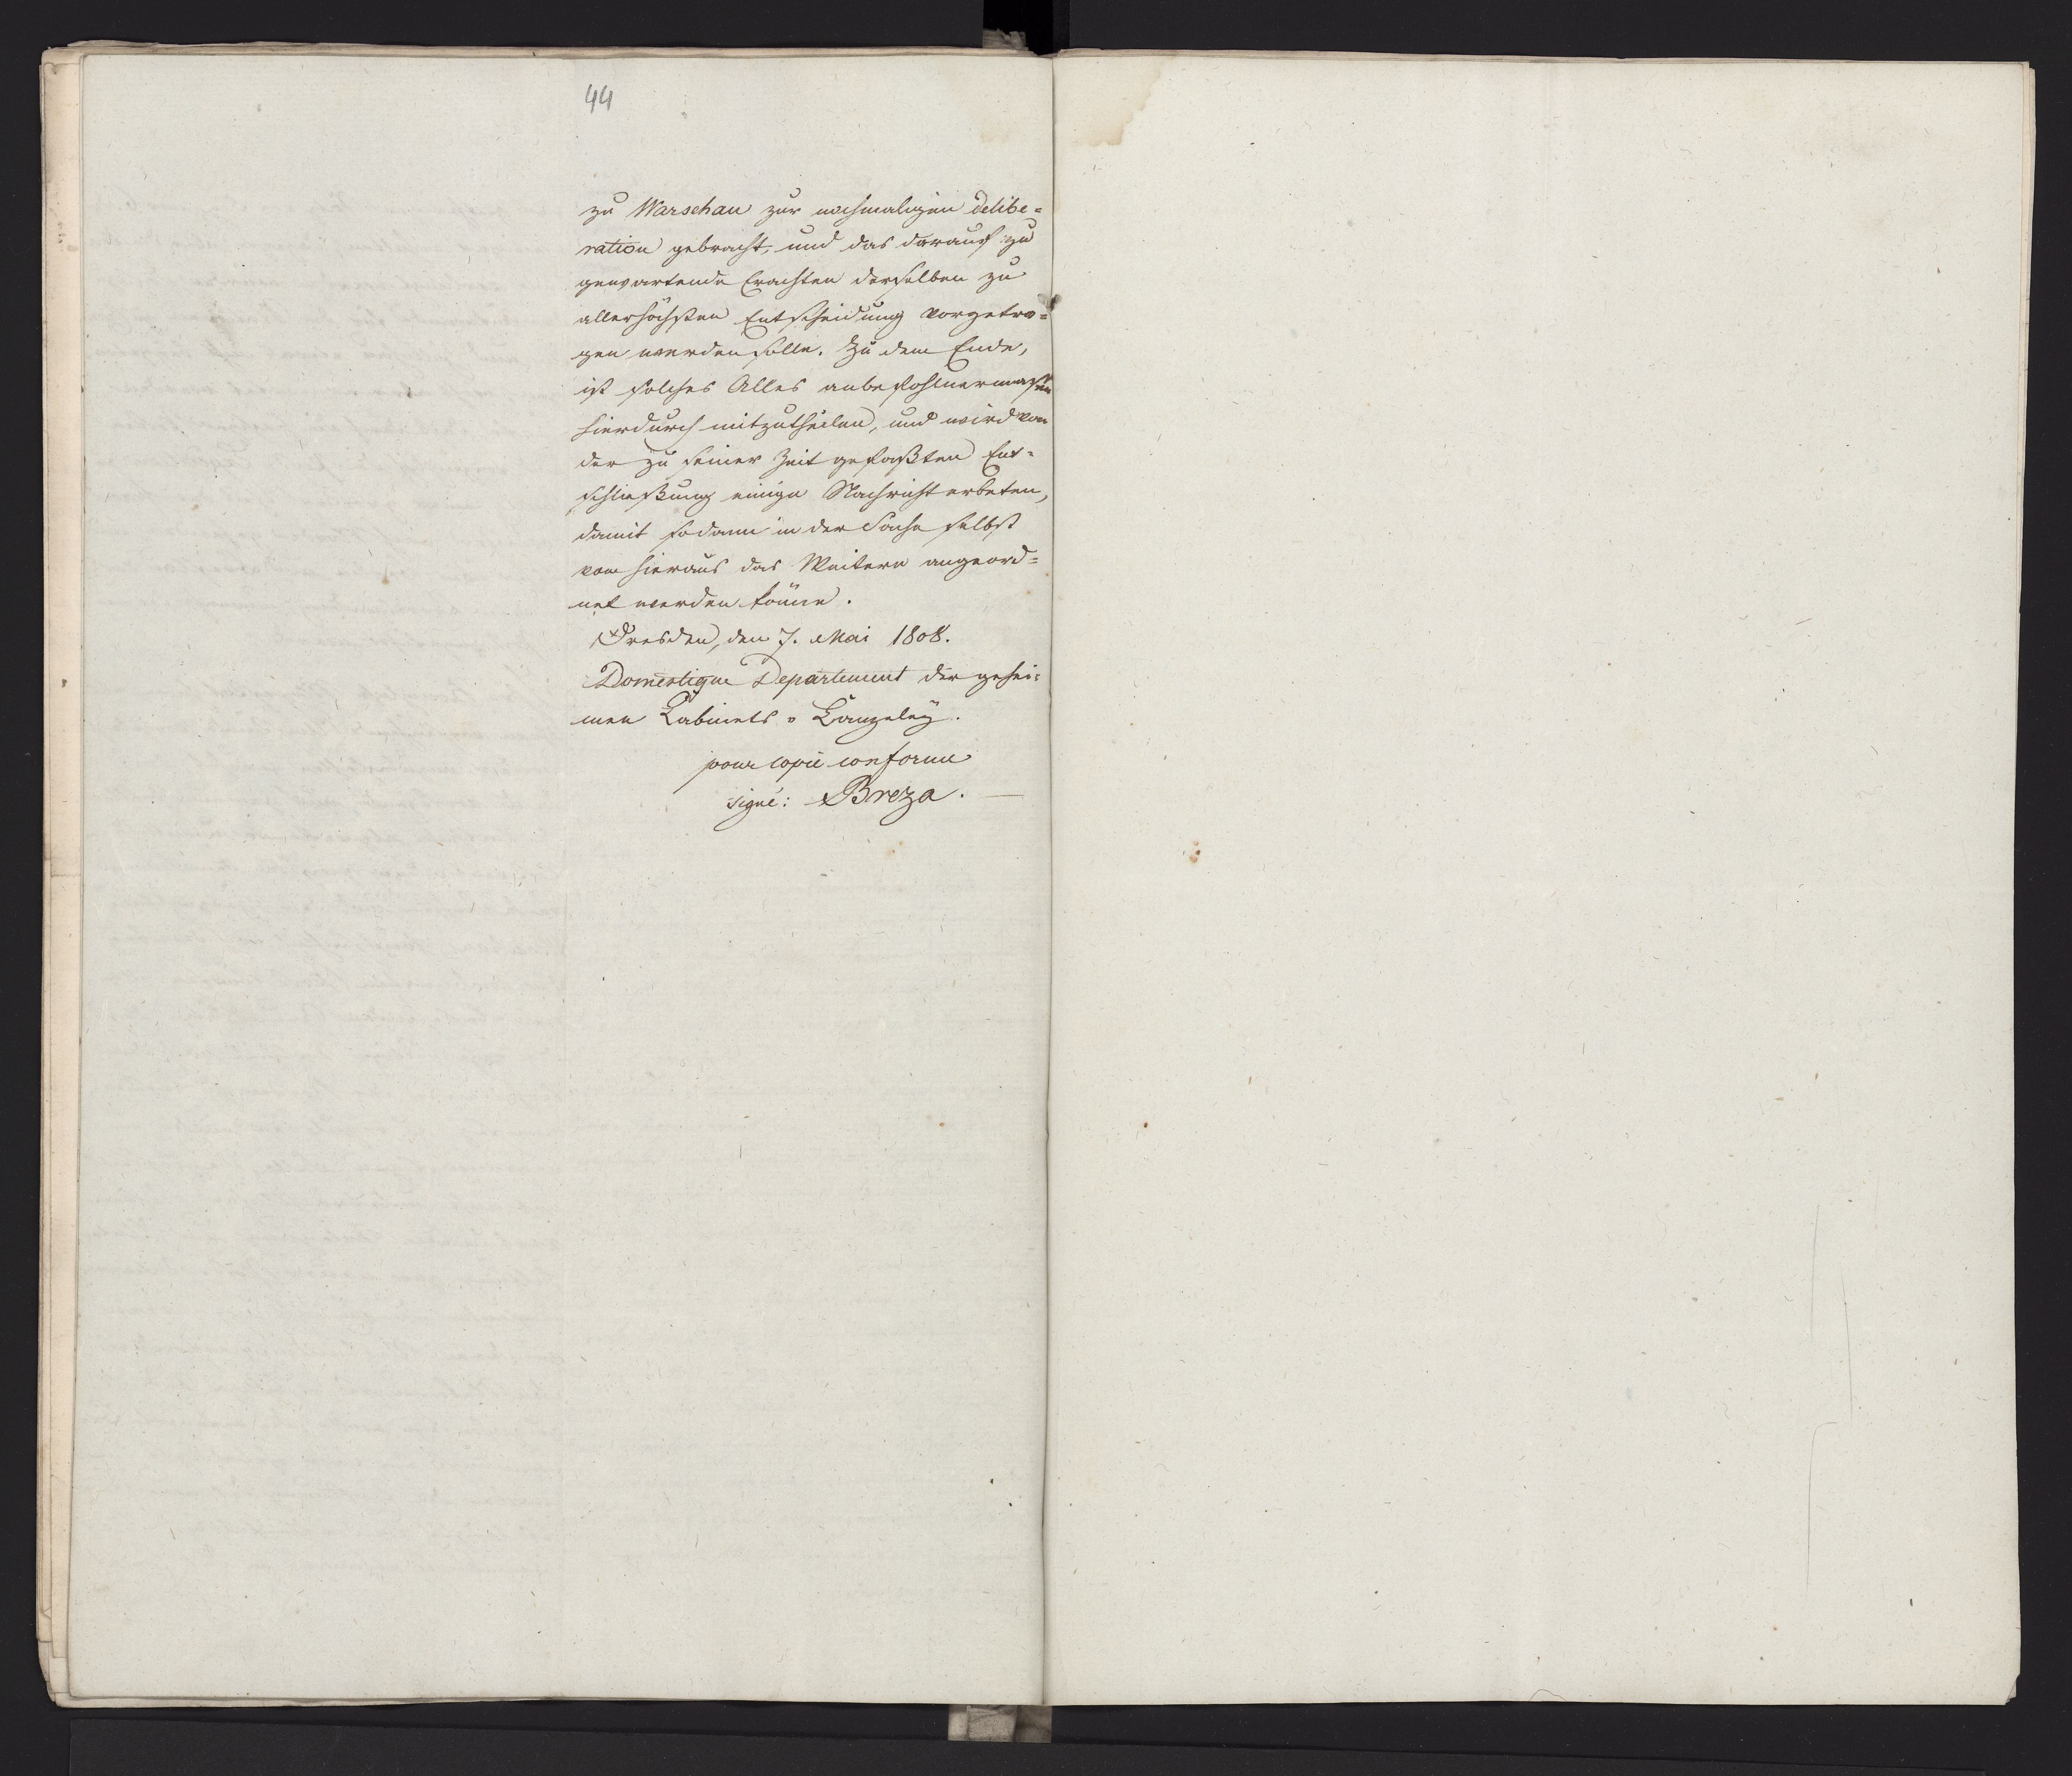 44
zu Warschau zur nochmaligen Delibe=
ration gebracht, und das darauf zu
gewartende Erachten derselben zu
allerhöchsten Entscheidung vorgetra=
gen werden solle. Zu dem Ende,
ist solches Alles anbefohlnermaßen
hierdurch mitzutheilen, und wird von
der zu seiner Zeit gefaßten Ent=
schließung einige Nachricht erbeten,
damit sodann in der Sache selbst
von hieraus das Weitere angeord=
net werden könne.
Dresden, den 7. Mai 1808.
Domestique Departement der gehei=
men Cabinets = Canzeley.
pour copie conforme
signé: Breza.